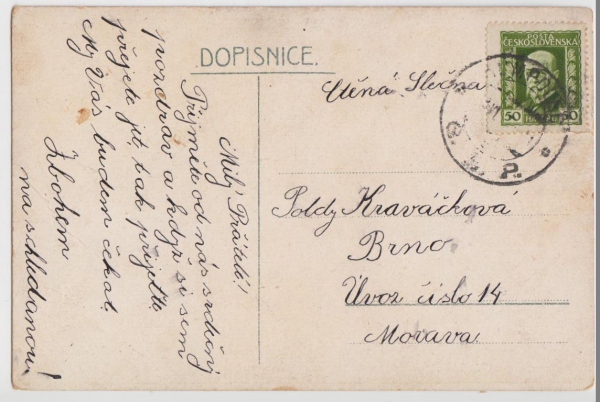 DOPISNICE.
POSTA
ČESKOSLOVENSKÁ
50
50
Milý Přátelé!
Přijměte od nás srdečný
pozdrav a když si sem
přejete jít, tak přijeďte
My Vás budem čekat.
Zbohem
na schledanou!
Ctěná Slečna
Poldy Kraváčková
Brno
Úvoz číslo 14
Morava